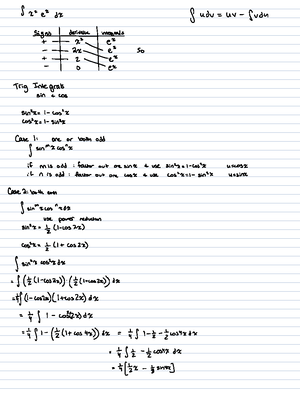 ∫ x² eˣ dx    ∫ u dv = uv - ∫ v du
signs  derivative  integrals
+  x²  eˣ
-  2x  eˣ  so
+  2  eˣ
-  0  eˣ
Trig Integrals
sin + cos
sin²x = 1 - cos²x
cos²x = 1 - sin²x
Case 1: one or both odd
∫ sinᵐ x cosⁿ x
if m is odd : factor out one sin x & use sin²x = 1 - cos²x  u = cos x
if n is odd : factor out one cos x & use cos²x = 1 - sin²x  u = sin x
Case 2: both even
∫ sinᵐ x cosⁿ x dx
use power reduction
sin²x = ½ (1 - cos 2x)
cos²x = ½ (1 + cos 2x)
∫ sin²x cos²x dx
= ∫ (½ (1 - cos 2x)) · (½ (1 + cos 2x)) dx
= ¼ ∫ (1 - cos 2x)(1 + cos 2x) dx
= ¼ ∫ 1 - cos²(2x) dx
= ¼ ∫ 1 - (½ (1 + cos 4x)) dx = ¼ ∫ 1 - ½ - ½ cos 4x dx
= ¼ ∫ ½ - ½ cos 4x dx
= ¼ [½ x - ⅛ sin 4x]